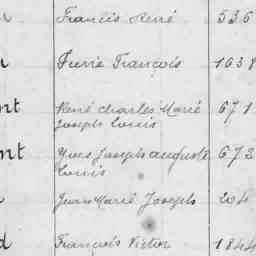 Francis René 536
Pierre François 1038
nt René Charles Marie 671
Joseph Louis
nt Yves Joseph Auguste 672
Louis
Jean Marie Joseph 204
d François Victor 1844